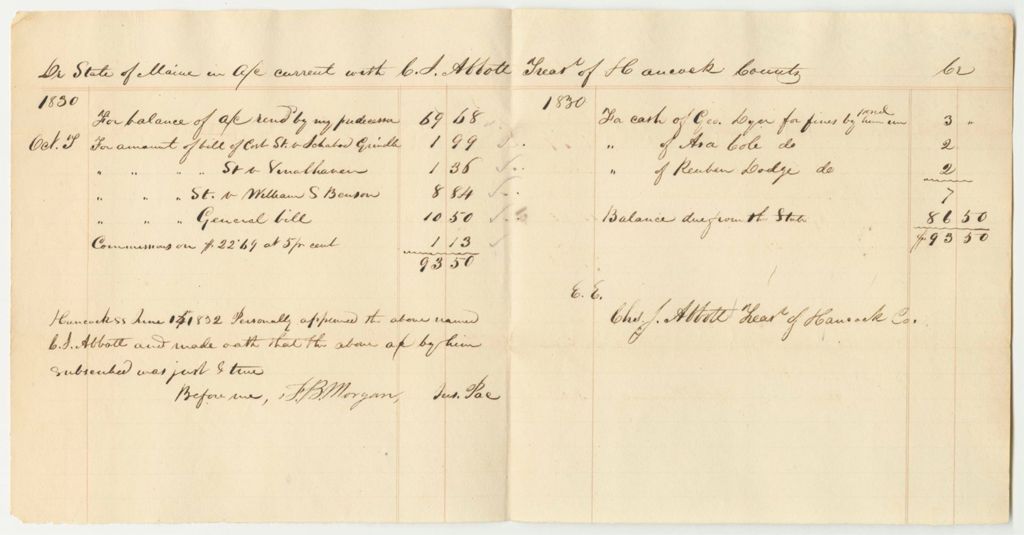 Dr State of Maine in a/c current with C. J. Abbott Treasr of Hancock County Cr
1830
For balance of a/c rend by my predecessor 69 68
Oct. T For amount of bill of Cost St. v Ichabod Grindle 1 99
" " " " St v Vinalhaven 1 36
" " " St. v William S Benson 8 84
" " " General bill 10 50
Commissions on $22.69 at 5 pr cent 1 13
93 50
Hancock ss June 15 1832 Personally appeared the above named
C. J. Abbott and made oath that the above a/c by him
subscribed was just & true
Before me, F. B. Morgan, Jus. Pac
1830
Fa cash of Geo. Dyer for fines by him 3 "
" of Asa Cole do 2
" of Reuben Dodge do 2
7
Balance due from the State 86 50
$93 50
E. E.
Chs J. Abbott Treasr of Hancock Co.